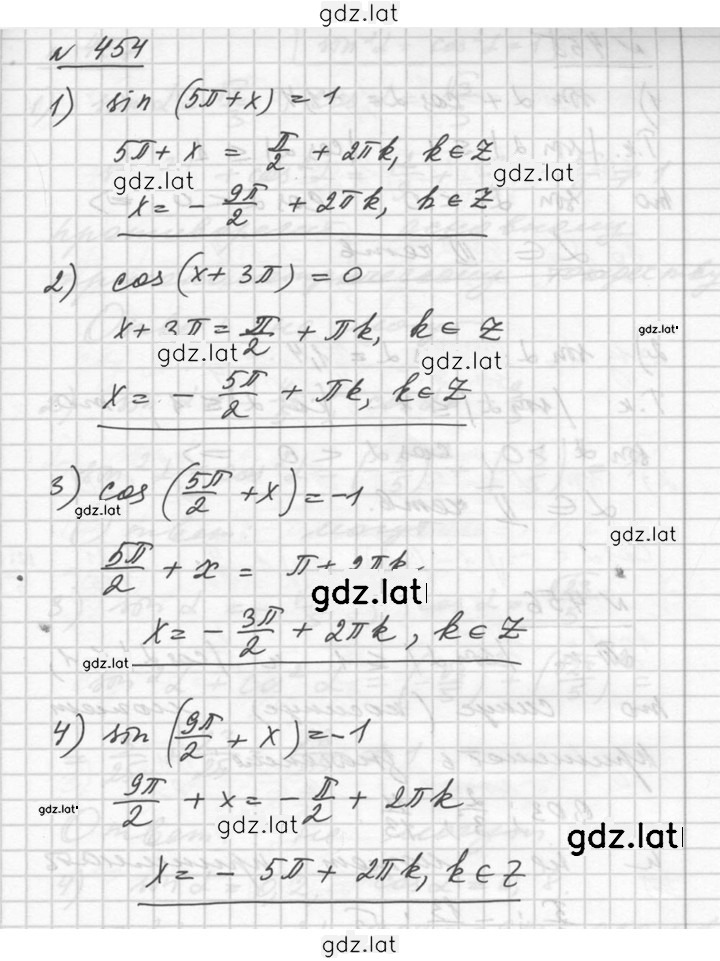 gdz.lat
N 454
1) sin (5π+x) = 1
5π + x = π/2 + 2πk, k ∈ Z
gdz.lat gdz.lat
x = - 9π/2 + 2πk, k ∈ Z
2) cos (x + 3π) = 0
x + 3π = π/2 + πk, k ∈ Z
gdz.lat gdz.lat gdz.lat
x = - 5π/2 + πk, k ∈ Z
3) cos (5π/2 + x) = -1
gdz.lat gdz.lat
5π/2 + x = π + 2πk
gdz.lat
x = - 3π/2 + 2πk, k ∈ Z
gdz.lat
4) sin (9π/2 + x) = -1
9π/2 + x = - π/2 + 2πk
gdz.lat gdz.lat gdz.lat
x = - 5π + 2πk, k ∈ Z
gdz.lat